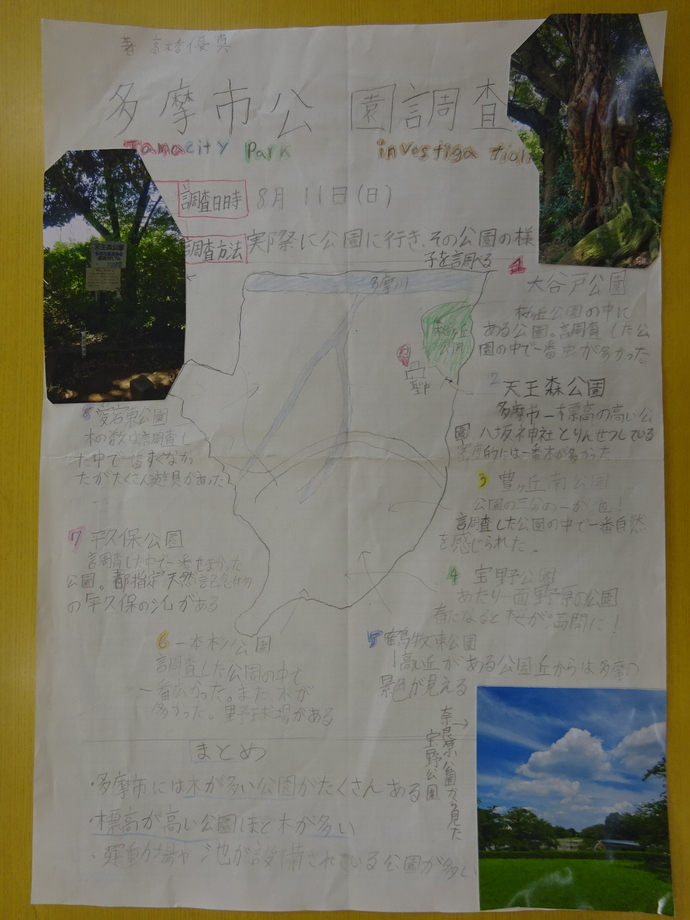 著 高橋優真
多摩市公園調査
Tama city Park investigation
調査日時 8月11日(日)
調査方法 実際に公園に行き、その公園の様
子を調べる
多摩川
桜ヶ丘
公園
1 大谷戸公園
桜ヶ丘公園の中に
ある公園。調査した公
園の中で一番虫が多かった
2 天王森公園
多摩市一標高の高い公
園 八坂神社とりんせつしている
一番木が多かった
3 豊ヶ丘南公園
公園の三分の一が池!
調査した公園の中で一番自然
を感じられた。
4 宝野公園
あたり一面野原の公園
春になると桜が満開に!
5 鶴牧東公園
高い丘がある公園丘からは多摩の
景色が見える
6 一本杉公園
調査した公園の中で
一番広かった。また、木が
多かった。野球場がある
7 平久保公園
調査した中で一番せまかった
公園。都指定天然記念物
の平久保のシイがある
8 愛宕東公園
木の数は調査し
た中で一番少なかっ
たがたくさん遊具があった
奈良原公園から見た
宝野公園
まとめ
・多摩市には木が多い公園がたくさんある
・標高が高い公園ほど木が多い
・運動場や池が設備されている公園が多い